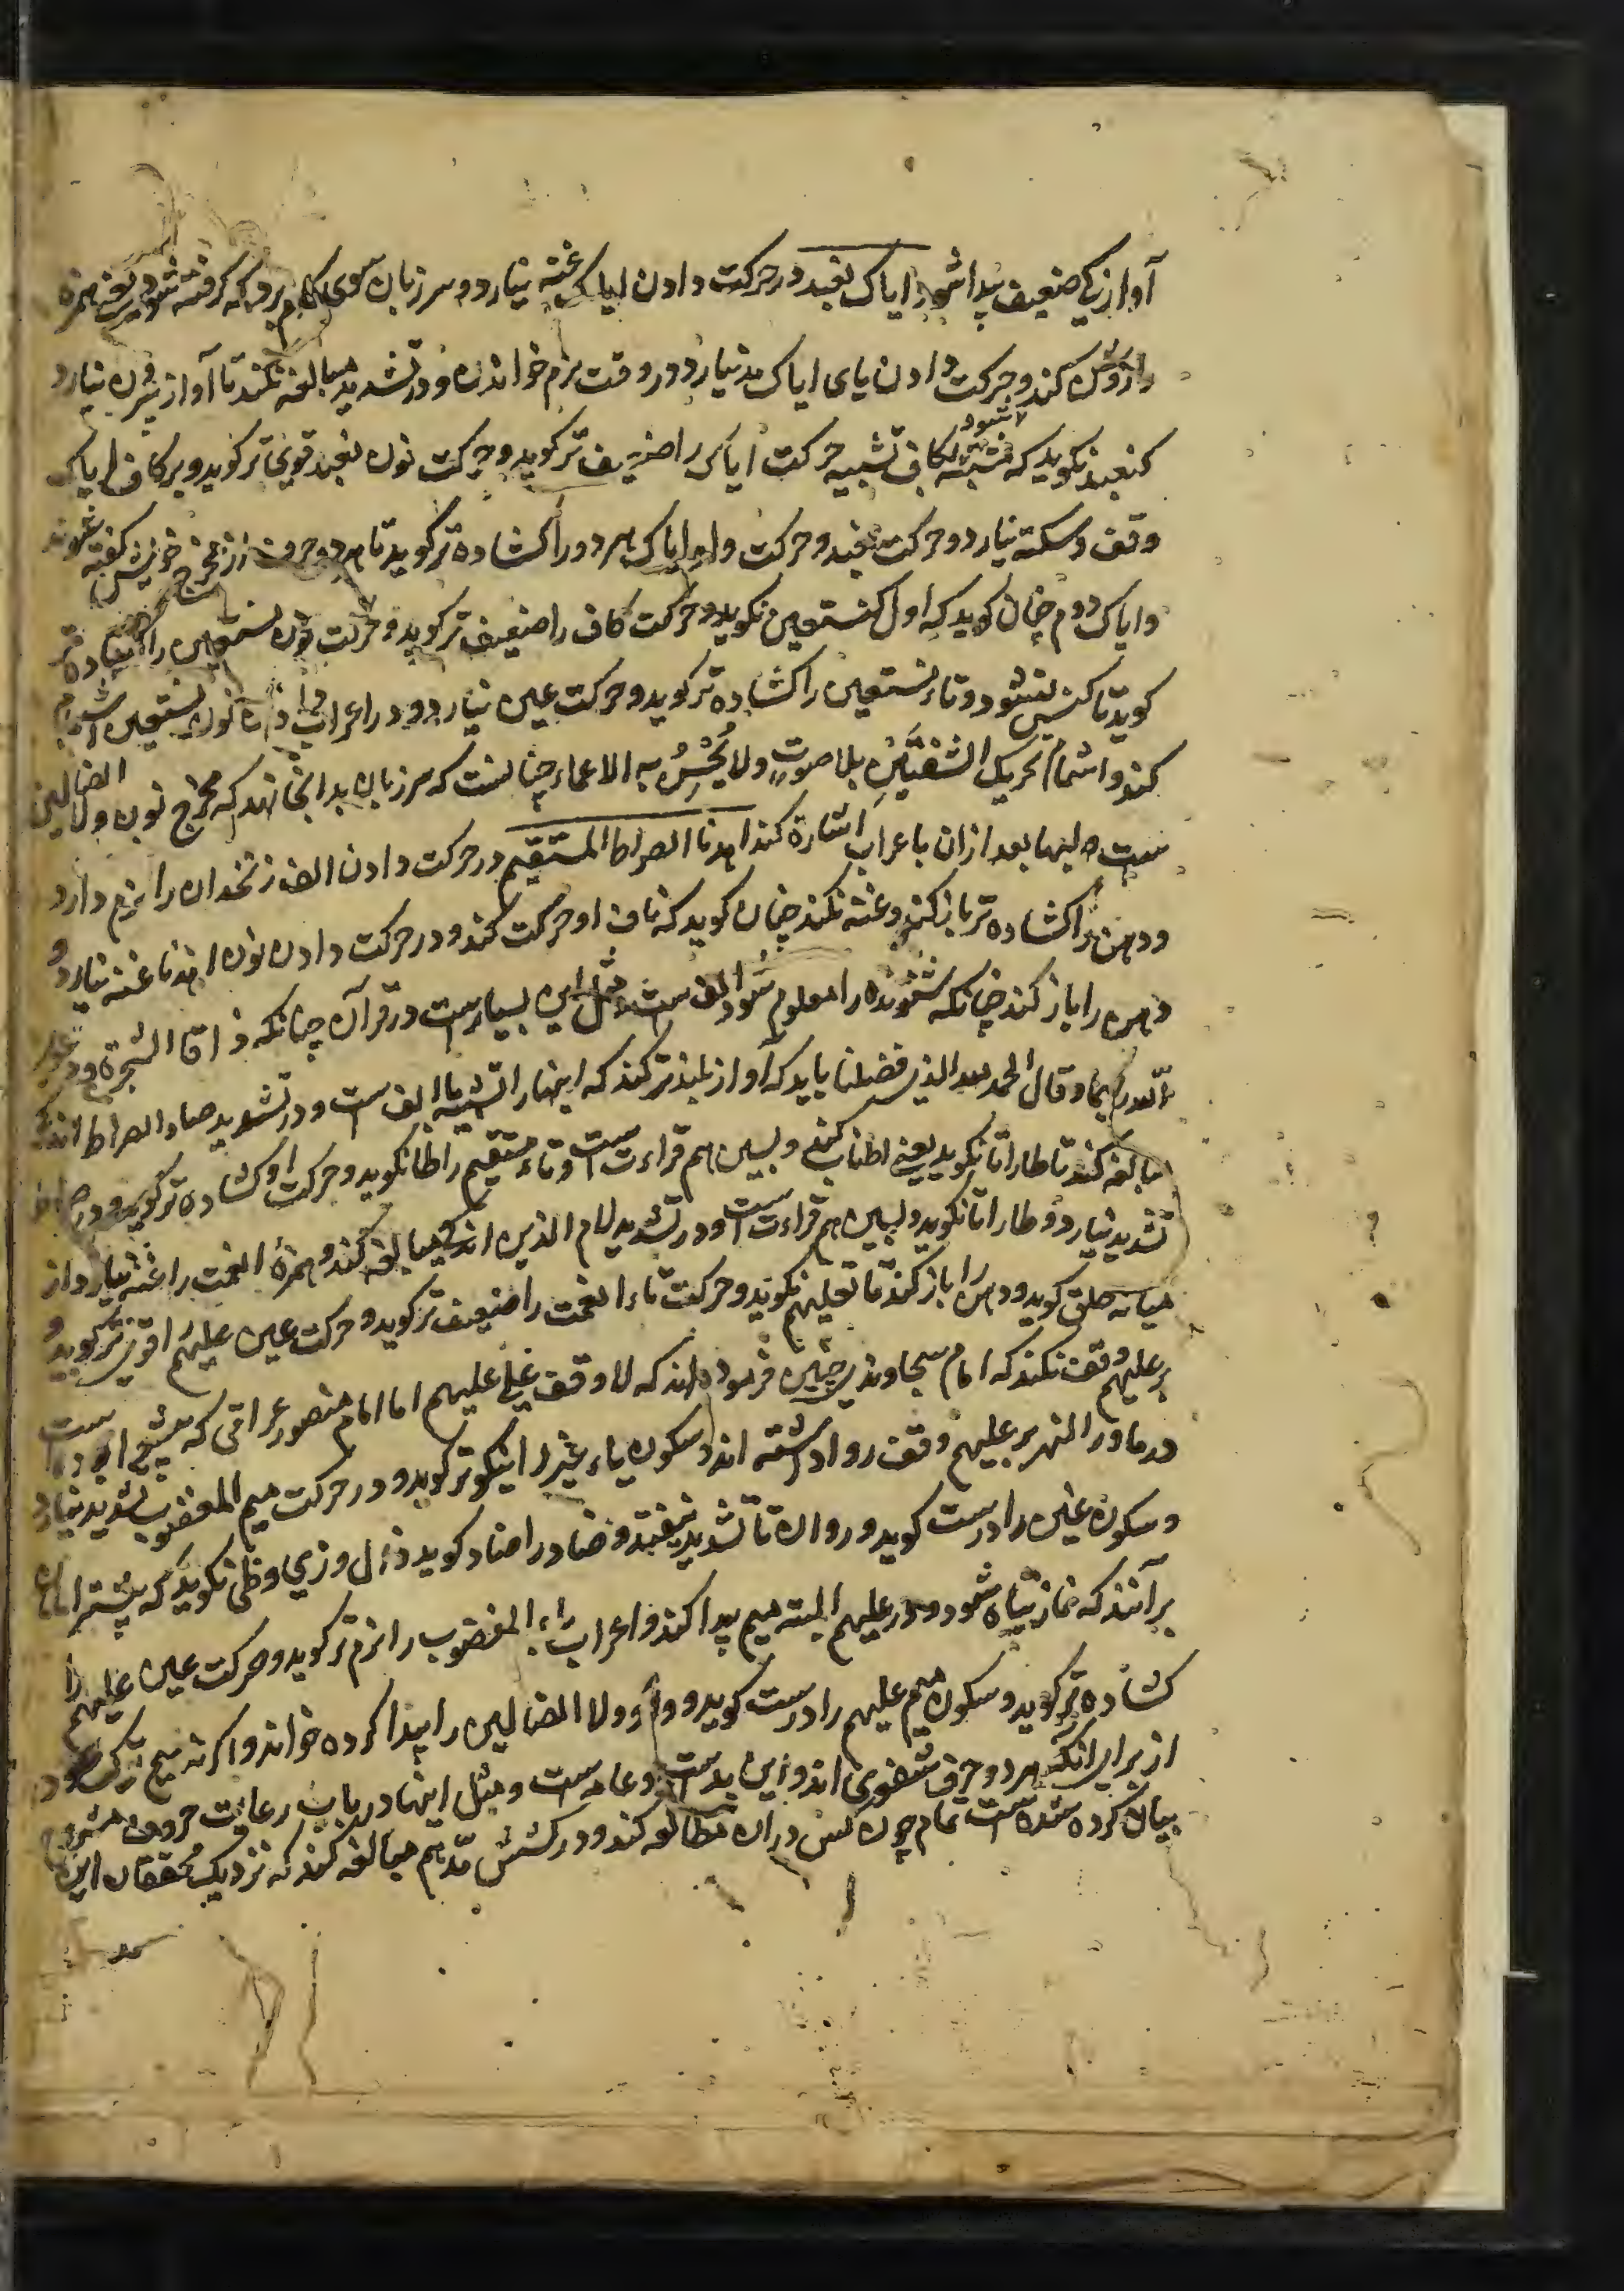 آوازیکی ضعیف پیدا شود ایاک نعبد در حرکت دادن ایاک غنه نیارد و سر زبان سوی کام برد که گرفته شود یعنی همزه
را روشن کند و حرکت دادن یای ایاک مد نیارد و در وقت نرم خواندن و در تشدید مبالغه نکند تا آواز بیرون نیارد
کنعبد نگوید که مشبه شود لکاف تشبیه حرکت ایاک را ضعیف تر گوید و حرکت نون نعبد قوی تر گوید و بر کاف ایاک
وقف و سکته نیارد و حرکت نعبد و حرکت واو ایاک هر دو را کشاده تر گوید تا هر دو حرف از مخرج خویش گفته شوند
و ایاک دوم چنان گوید که اول کنستعین نگوید و حرکت کاف را ضعیف تر گوید و حرکت نون نستعین را کشاده تر
گوید تا کنس نشود و تاء نستعین را کشاده تر گوید و حرکت عین نیارد و در اعراب دادن نون نستعین اشمام
کند و اشمام تحریک الشفتین بلا صوت ولا یحس به الاعماء چنانست که سر زبان بدانجا نهد که مخرج نون ولا الضالین
ست و لبها بعد ازان باعراب اشارة کند اهدنا الصراط المستقیم در حرکت دادن الف زنخدان را نرم دارد
و دهن را کشاده تر باز کند و غنه نکند چنان گوید که ناف او حرکت کند و در حرکت دادن نون اهدنا غنه نیارد و
دهن را باز کند چنانکه شنونده را معلوم شود الف ست و مثل این بسیارست در قرآن چنانکه ذاقا الشجرة و دعوا
الله ربهما و قال الحمد لله الذی فضلنا باید که آواز بلند تر کند که اینها را تثنیه با الف ست و در تشدید صاد الصراط اندک
مبالغه کند تا طا را تا نگوید یعنی اطناب کند و بسین هم قراءت ست و تاء مستقیم را طا نگوید و حرکت او کشاده تر گوید و در صراط
تشدید نیارد و طا را تا نگوید و بسین هم قراءت ست و در تشدید لام الذین اندک مبالغه کند و همزهٔ انعمت را غنه نیارد از
میانه حلق گوید و دهن را باز کند تا تعلیهم نگوید و حرکت تاء انعمت را ضعیف تر گوید و حرکت عین علیهم را قوی تر گوید و
بر علیهم وقف نکند که امام سجاوندی چنین فرموده اند که لا وقف علی علیهم اما امام منصور عراقی که شیخ ست
در ماورا النهر بر علیهم وقف روا داشته اند و سکون یاء غیر را نیکو تر گوید و در حرکت میم المغضوب تشدید نیارد
و سکون غین را درست گوید و روان تا تشدید نیفتد و ضاد را ضاد گوید ذال و زی و ظی نگوید که بیشتر امامان
برآنند که نماز تباه شود و در علیهم البته میم پیدا کند و اعراب باء المغضوب را نرم تر گوید و حرکت عین علیهم را
کشاده تر گوید و سکون میم علیهم را درست گوید و واو ولا الضالین را پیدا کرده خواند و اگر نه هیچ ترک شود
از برای آنکه هر دو حرف شفوی اند و این بدست و عامه ست و مثل اینها در باب رعایت حروف مشروح
بیان کرده شده ست تمام چون کس دران مطالعه کند و در کشش مد هم مبالغه کند که نزدیک محققان این